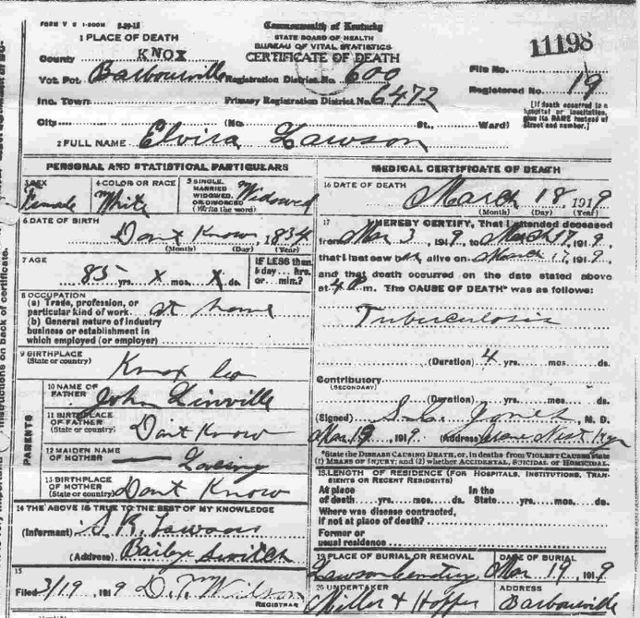 FORM V S 1-500M 5-29-15
Commonwealth of Kentucky
STATE BOARD OF HEALTH
BUREAU OF VITAL STATISTICS
CERTIFICATE OF DEATH
11198
1 PLACE OF DEATH
County KNOX
Vot. Pct. Barbourville Registration District No. 600
File No.
Registered No. 19
Inc. Town Primary Registration District No. 6472
[If death occurred in a hospital or institution, give its NAME instead of street and number.]
City (No. St., Ward)
2 FULL NAME Elvira Lawson
PERSONAL AND STATISTICAL PARTICULARS
3 SEX Female
4 COLOR OR RACE White
5 SINGLE, MARRIED WIDOWED, OR DIVORCED (Write the word) Widowed
6 DATE OF BIRTH
Dont Know, 1834
(Month) (Day) (Year)
7 AGE
85 yrs. X mos. X ds.
IF LESS than 1 day ... hrs. or ... min.?
8 OCCUPATION
(a) Trade, profession, or particular kind of work at home
(b) General nature of industry business or establishment in which employed (or employer)
9 BIRTHPLACE
(State or country) Knox Co
PARENTS
10 NAME OF FATHER John Linville
11 BIRTHPLACE OF FATHER
(State or country) Dont Know
12 MAIDEN NAME OF MOTHER
13 BIRTHPLACE OF MOTHER
(State or country) Dont Know
14 THE ABOVE IS TRUE TO THE BEST OF MY KNOWLEDGE
(Informant) S. R. Lawson
(Address) Bailey Switch
15
Filed 3/19 1919 D. T. Wilson
REGISTRAR
MEDICAL CERTIFICATE OF DEATH
16 DATE OF DEATH
March 18, 1919
(Month) (Day) (Year)
17 I HEREBY CERTIFY, That I attended deceased
from Mar 3, 1919, to March 17, 1919,
that I last saw alive on March 17, 1919,
and that death occurred on the date stated above
at 4 P m. The CAUSE OF DEATH* was as follows:
Tuberculosis
(Duration) 4 yrs. mos. ds.
Contributory
(Secondary)
(Duration) yrs. mos. ds.
(Signed) S. C. Jones, M. D.
Mar 19 1919 (Address)
*State the DISEASE CAUSING DEATH, or, in deaths from VIOLENT CAUSES state (1) MEANS OF INJURY; and (2) whether ACCIDENTAL, SUICIDAL or HOMICIDAL.
18. LENGTH OF RESIDENCE (FOR HOSPITALS, INSTITUTIONS, TRANSIENTS OR RECENT RESIDENTS)
At place of death yrs. mos. ds. In the State yrs. mos. ds.
Where was disease contracted,
if not at place of death?
Former or
usual residence
19 PLACE OF BURIAL OR REMOVAL
Lawson Cemetery
DATE OF BURIAL
Mar 19 1919
20 UNDERTAKER
Miller & Hopper
ADDRESS
Barbourville